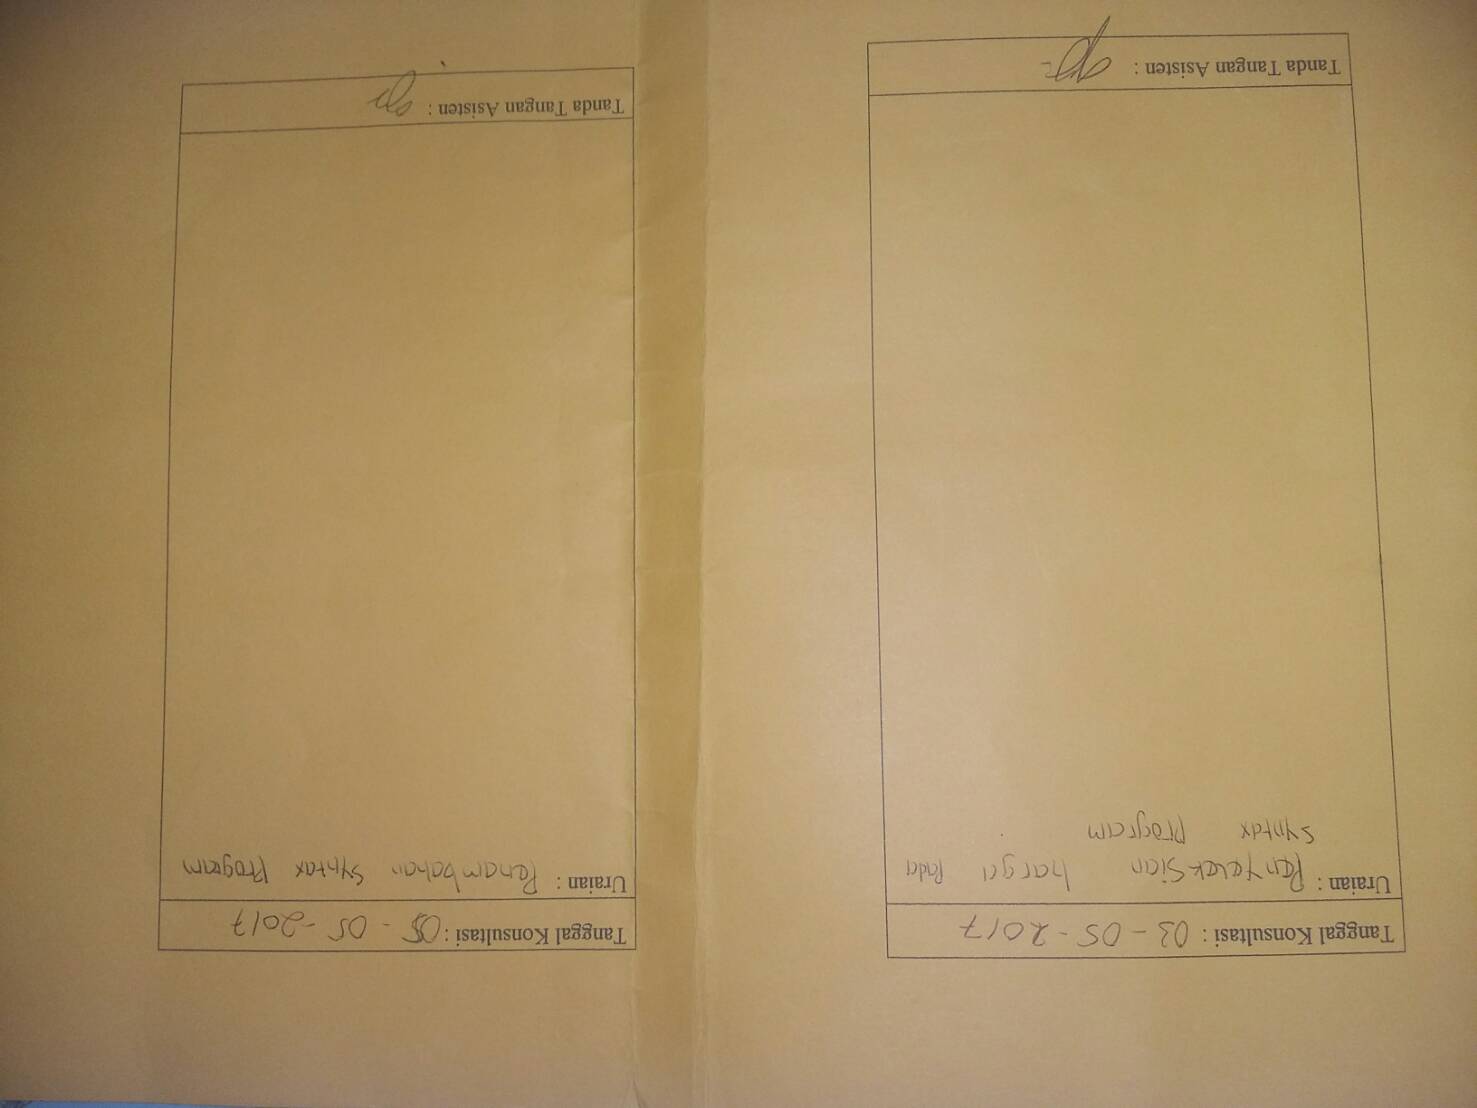 Tanggal Konsultasi : 03 - 05 - 2017
Uraian : harga Pada
Syntax Program
Tanda Tangan Asisten :
Tanggal Konsultasi : 05 - 05 - 2017
Uraian : Penambahan Syntax Program
Tanda Tangan Asisten :